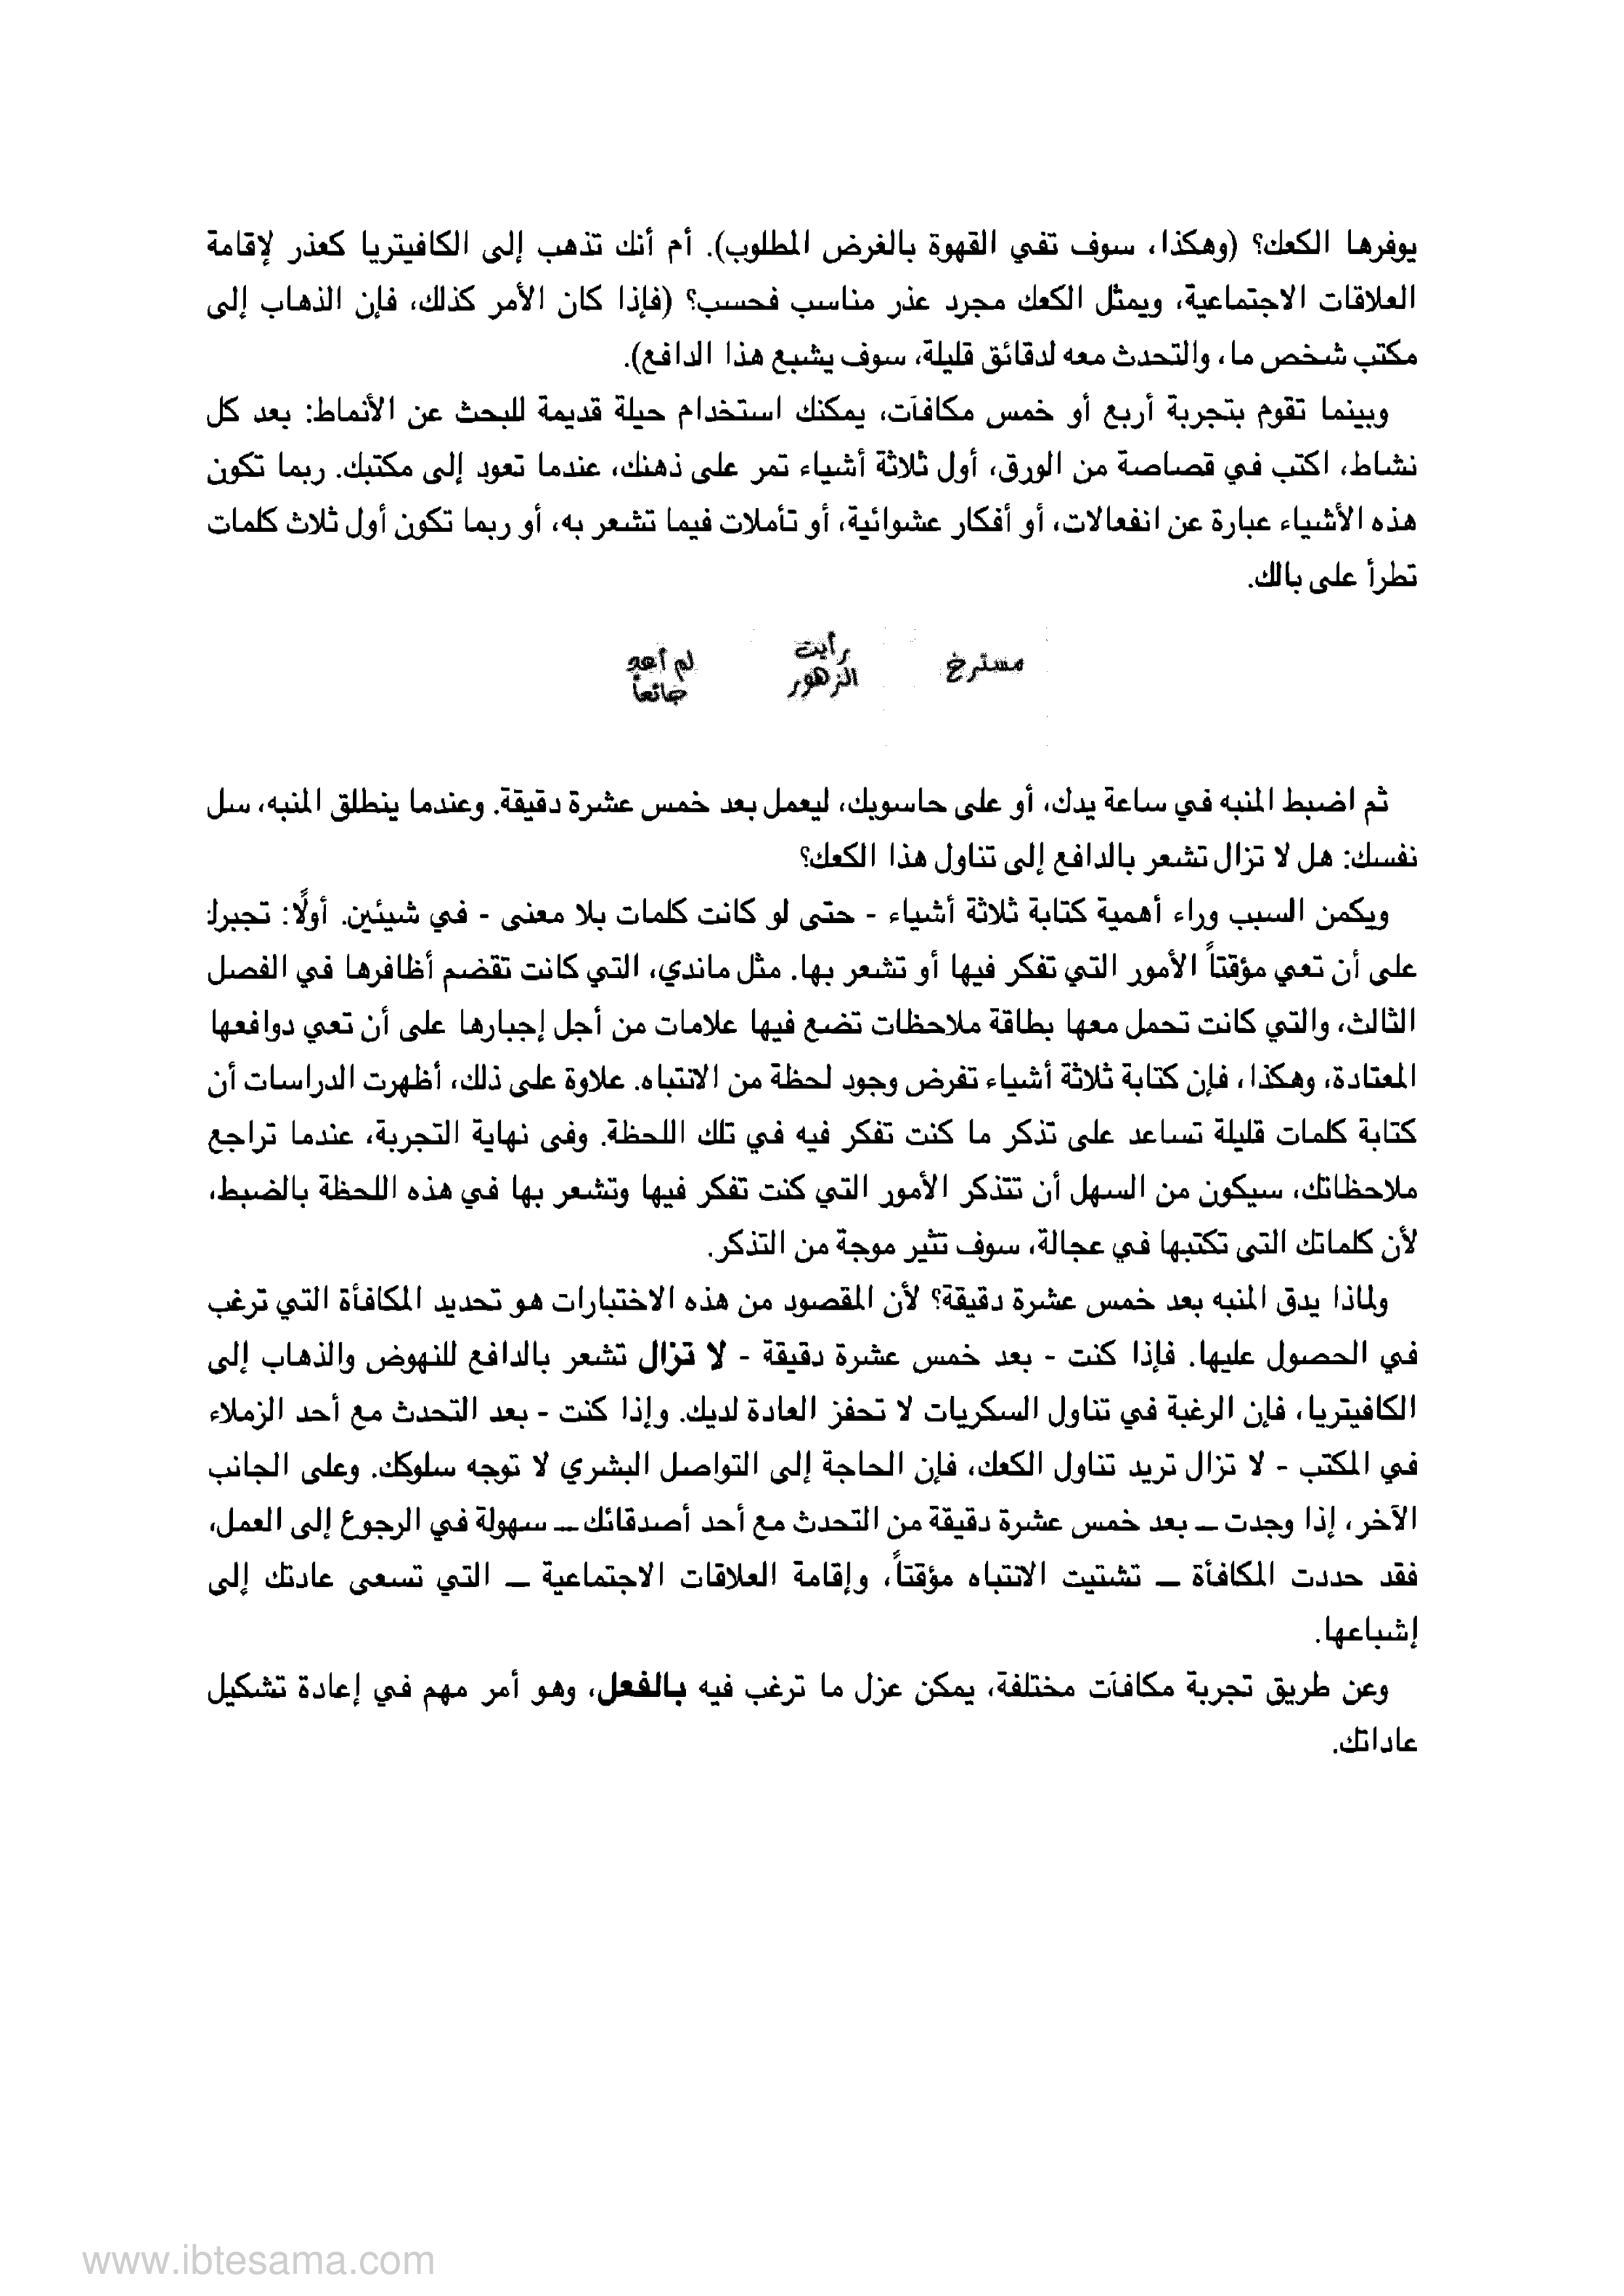 يوفرها الكعك؟ (وهكذا، سوف تفي القهوة بالغرض المطلوب). أم أنك تذهب إلى الكافيتريا كعذر لإقامة
العلاقات الاجتماعية، ويمثل الكعك مجرد عذر مناسب فحسب؟ (فإذا كان الأمر كذلك، فإن الذهاب إلى
مكتب شخص ما، والتحدث معه لدقائق قليلة، سوف يشبع هذا الدافع).
وبينما تقوم بتجربة أربع أو خمس مكافآت، يمكنك استخدام حيلة قديمة للبحث عن الأنماط: بعد كل
نشاط، اكتب في قصاصة من الورق، أول ثلاثة أشياء تمر على ذهنك، عندما تعود إلى مكتبك. ربما تكون
هذه الأشياء عبارة عن انفعالات، أو أفكار عشوائية، أو تأملات فيما تشعر به، أو ربما تكون أول ثلاث كلمات
تطرأ على بالك.
مسترخ
رأيت
الزهور
لم أعد
جائعاً
ثم اضبط المنبه في ساعة يدك، أو على حاسوبك، ليعمل بعد خمس عشرة دقيقة. وعندما ينطلق المنبه، سل
نفسك: هل لا تزال تشعر بالدافع إلى تناول هذا الكعك؟
ويكمن السبب وراء أهمية كتابة ثلاثة أشياء - حتى لو كانت كلمات بلا معنى - في شيئين. أولًا: تجبرك
على أن تعي مؤقتاً الأمور التي تفكر فيها أو تشعر بها. مثل ماندي، التي كانت تقضم أظافرها في الفصل
الثالث، والتي كانت تحمل معها بطاقة ملاحظات تضع فيها علامات من أجل إجبارها على أن تعي دوافعها
المعتادة، وهكذا، فإن كتابة ثلاثة أشياء تفرض وجود لحظة من الانتباه. علاوة على ذلك، أظهرت الدراسات أن
كتابة كلمات قليلة تساعد على تذكر ما كنت تفكر فيه في تلك اللحظة. وفى نهاية التجربة، عندما تراجع
ملاحظاتك، سيكون من السهل أن تتذكر الأمور التي كنت تفكر فيها وتشعر بها في هذه اللحظة بالضبط،
لأن كلماتك التى تكتبها في عجالة، سوف تثير موجة من التذكر.
ولماذا يدق المنبه بعد خمس عشرة دقيقة؟ لأن المقصود من هذه الاختبارات هو تحديد المكافأة التي ترغب
في الحصول عليها. فإذا كنت - بعد خمس عشرة دقيقة - لا تزال تشعر بالدافع للنهوض والذهاب إلى
الكافيتريا، فإن الرغبة في تناول السكريات لا تحفز العادة لديك. وإذا كنت - بعد التحدث مع أحد الزملاء
في المكتب - لا تزال تريد تناول الكعك، فإن الحاجة إلى التواصل البشري لا توجه سلوكك. وعلى الجانب
الآخر، إذا وجدت – بعد خمس عشرة دقيقة من التحدث مع أحد أصدقائك – سهولة في الرجوع إلى العمل،
فقد حددت المكافأة – تشتيت الانتباه مؤقتاً، وإقامة العلاقات الاجتماعية – التي تسعى عادتك إلى
إشباعها.
وعن طريق تجربة مكافآت مختلفة، يمكن عزل ما ترغب فيه بالفعل، وهو أمر مهم في إعادة تشكيل
عاداتك.
www.ibtesama.com